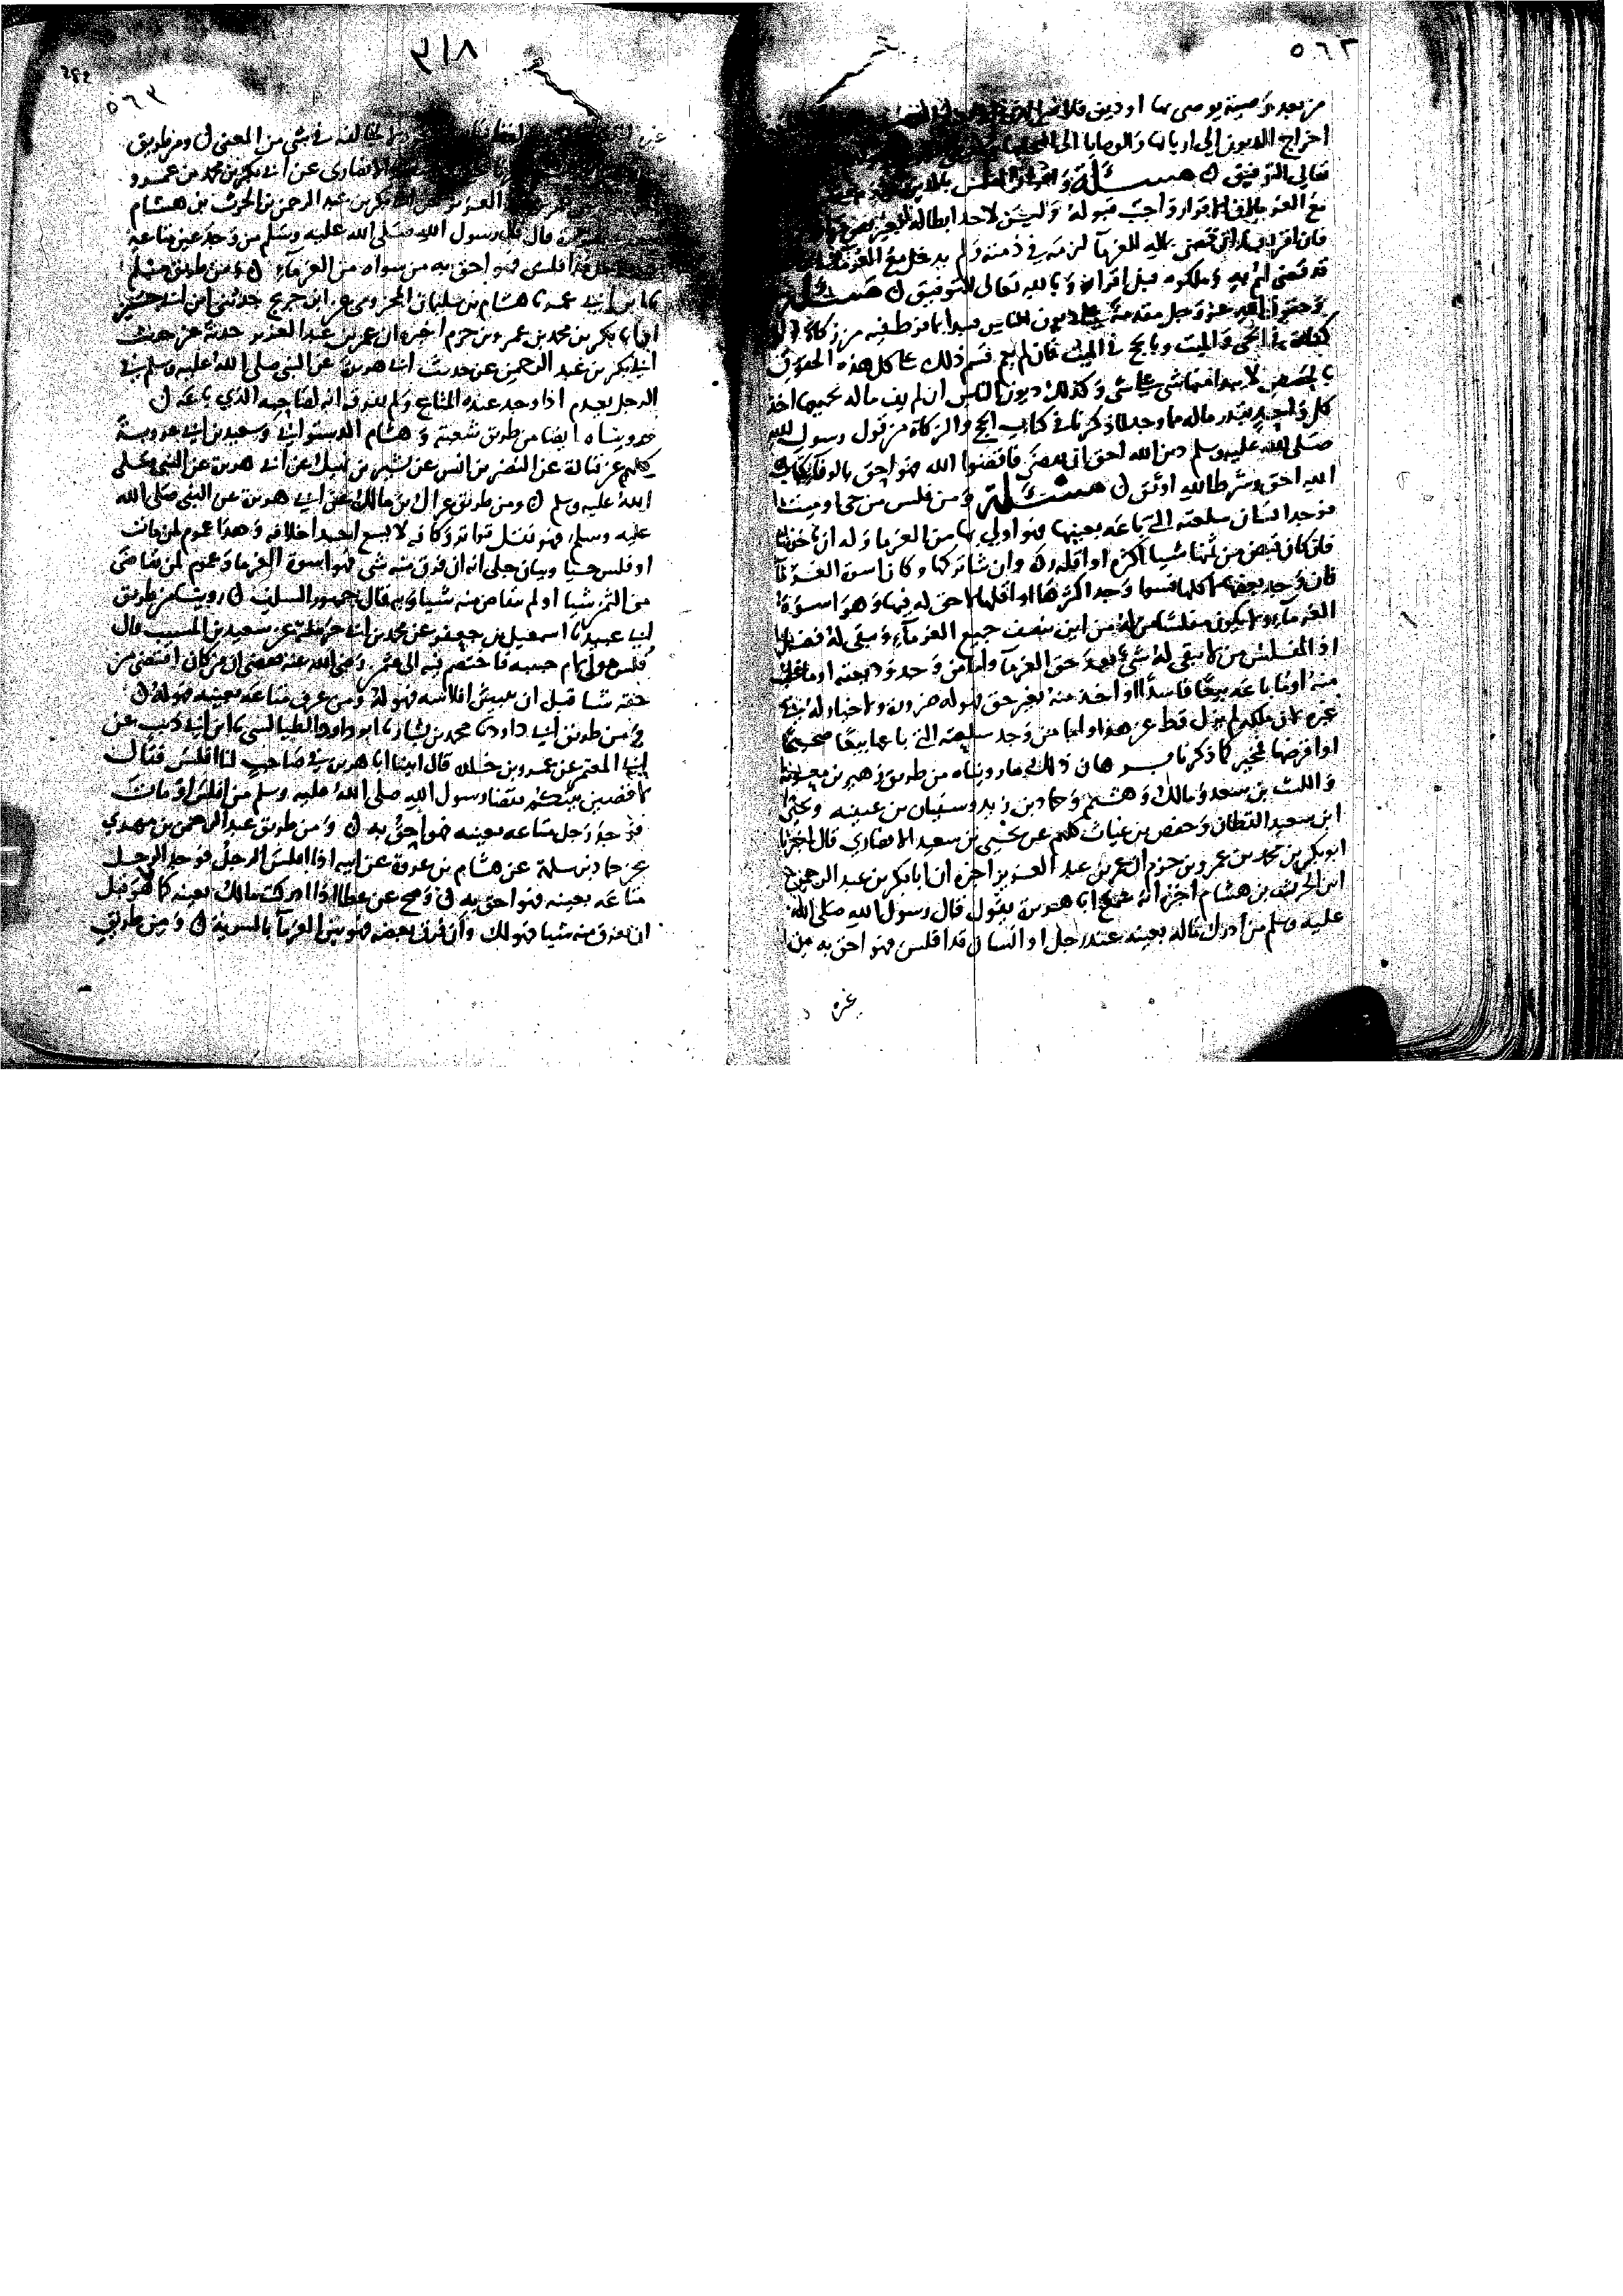 ٥٦٢
من بعد وصية يوصي بها او دين
اخراج الديون الى اربابها والوصايا الى
تعالى التوفيق مسئلة واقرار المفلس بالدين
مع العزم بالف اقرار واجب قبوله وليس لاحد ابطاله بغير نص
فان اقر بعد ان قضى بماله للغرما لزمه في ذمته ولم يدخل مع الغرما
قد قضي لهم به وملكوه قبل اقراره وبالله تعالى التوفيق مسئلة
وحقوق الله عز وجل مقدمة على ديون الناس فيبدا بما فرط فيه من زكاة او
كفارة في الحي والميت وبالحج في الميت فان لم يعم قسم ذلك على كل هذه الحقوق
بالحصص لا يبدا منها شي على شي وكذلك ديون الناس ان لم يف ماله بجميعها اخذ
كل واحد بقدر ماله مما وجد لما ذكرنا في كتاب الحج والزكاة من قول رسول الله
صلى الله عليه وسلم دين الله احق ان يقضى فاقضوا الله فهو احق بالوفا كتاب
الله احق وشرط الله اوثق مسئلة ومن فلس من حي او ميت
فوجد انسان سلعته التي باعه بعينها فهو اولى بها من الغرما وله ان ياخذها
فان كان قبض من ثمنها شيا اكثره او اقله رده وان شا تركها وكان اسوة الغرما
فان وجد بعضها لا كلها فسوا وجد اكثرها او اقلها لا حق له فيها وهو اسوة
الغرما ولا يكون مفلسا من له من اين ينصف جميع الغرما ويبقى له فضل
انما المفلس من لا يبقى له شي بعد حق الغرما واما من وجد وديعته او ما غصب
منه او ما باعه بيعا فاسدا او اخذ منه بغير حق فهو له ضرورة ولا خيار له في
غيره لان ملكه لم يزل قط عن هذا واما من وجد سلعته التي باعها بيعا صحيحا
او اقرضها فمخير كما ذكرنا برهان ذلك ما رويناه من طريق زهير بن معوية
والليث بن سعد ومالك وهشيم وحماد بن زيد وسفيان بن عيينه ويحيى
ابن سعيد القطان وحفص بن غياث كلهم عن يحيى بن سعيد الانصاري قال اخبرنا
ابو بكر بن محمد بن عمرو بن حزم ان عمر بن عبد العزيز اخبره ان ابا بكر بن عبد الرحمن
ابن الحرث بن هشام اخبره انه سمع ابا هريرة يقول قال رسول الله صلى الله
عليه وسلم من ادرك ماله بعينه عند رجل او انسان قد افلس فهو احق به من
غيره
٣١٨
٥٦٣
في شي من المعنى ومن طريق
الانصاري عن ابي بكر بن محمد بن عمرو
العزيز عن ابي بكر بن عبد الرحمن بن الحرث بن هشام
قال قال رسول الله صلى الله عليه وسلم من وجد عين متاعه
افلس فهو احق به من سواه من الغرما ومن طريق مسلم
نا ابن ابي عمر نا هشام بن سليمان المخزومي عن ابن جريج حدثني ابن ابي حسين
ان ابا بكر بن محمد بن عمرو بن حزم اخبره ان عمر بن عبد العزيز حدثه عن حديث
ابي بكر بن عبد الرحمن عن حديث ابي هريرة عن النبي صلى الله عليه وسلم في
الرجل يعدم اذا وجد عنده المتاع ولم يفرقه انه لصاحبه الذي باعه
ورويناه ايضا من طريق شعبة وهشام الدستوائي وسعيد بن ابي عروبة
كلهم عن قتادة عن النضر بن انس عن بشير بن نهيك عن ابي هريرة عن النبي صلى
الله عليه وسلم ومن طريق عراك بن مالك عن ابي هريرة عن النبي صلى الله
عليه وسلم فهو نقل تواتر وكافه لا يسع احدا خلافه وهذا عموم لمن مات
او فلس حيا وبيان جلي انه ان فرق منه شي فهو اسوة الغرما وعموم لمن تقاضى
من الثمن شيا او لم يتقاض منه شيا وبه قال جمهور السلف روينا من طريق
ابي عبيد نا اسمعيل بن جعفر عن محمد بن ابي حرملة عن سعيد بن المسيب قال
فلس مولى لام حبيبه فاختصم فيه الى عثمن رضي الله عنه فقضى ان من كان اقتضى من
حقه شيا قبل ان يتبين افلاسه فهو له ومن عرف متاعه بعينه فهو له
ومن طريق ابي داود نا محمد بن بشار نا ابو داود الطيالسي نا ابن ابي ذيب عن
ابي المعتمر عن عمرو بن خلده قال اتينا ابا هريرة في صاحب لنا افلس فقال
لاقضين بينكم بقضا رسول الله صلى الله عليه وسلم من افلس او مات
فوجد رجل متاعه بعينه فهو احق به ومن طريق عبد الرحمن بن مهدي
عن حماد بن سلمة عن هشام بن عروة عن ابيه اذا افلس الرجل فوجد الرجل
متاعه بعينه فهو احق به وصح عن عطا اذا ادركت مالك بعينه كما هو قبل
ان يفرق منه شيا فهو لك وان فرق بعضه فهو بين الغرما بالسوية ومن طريق